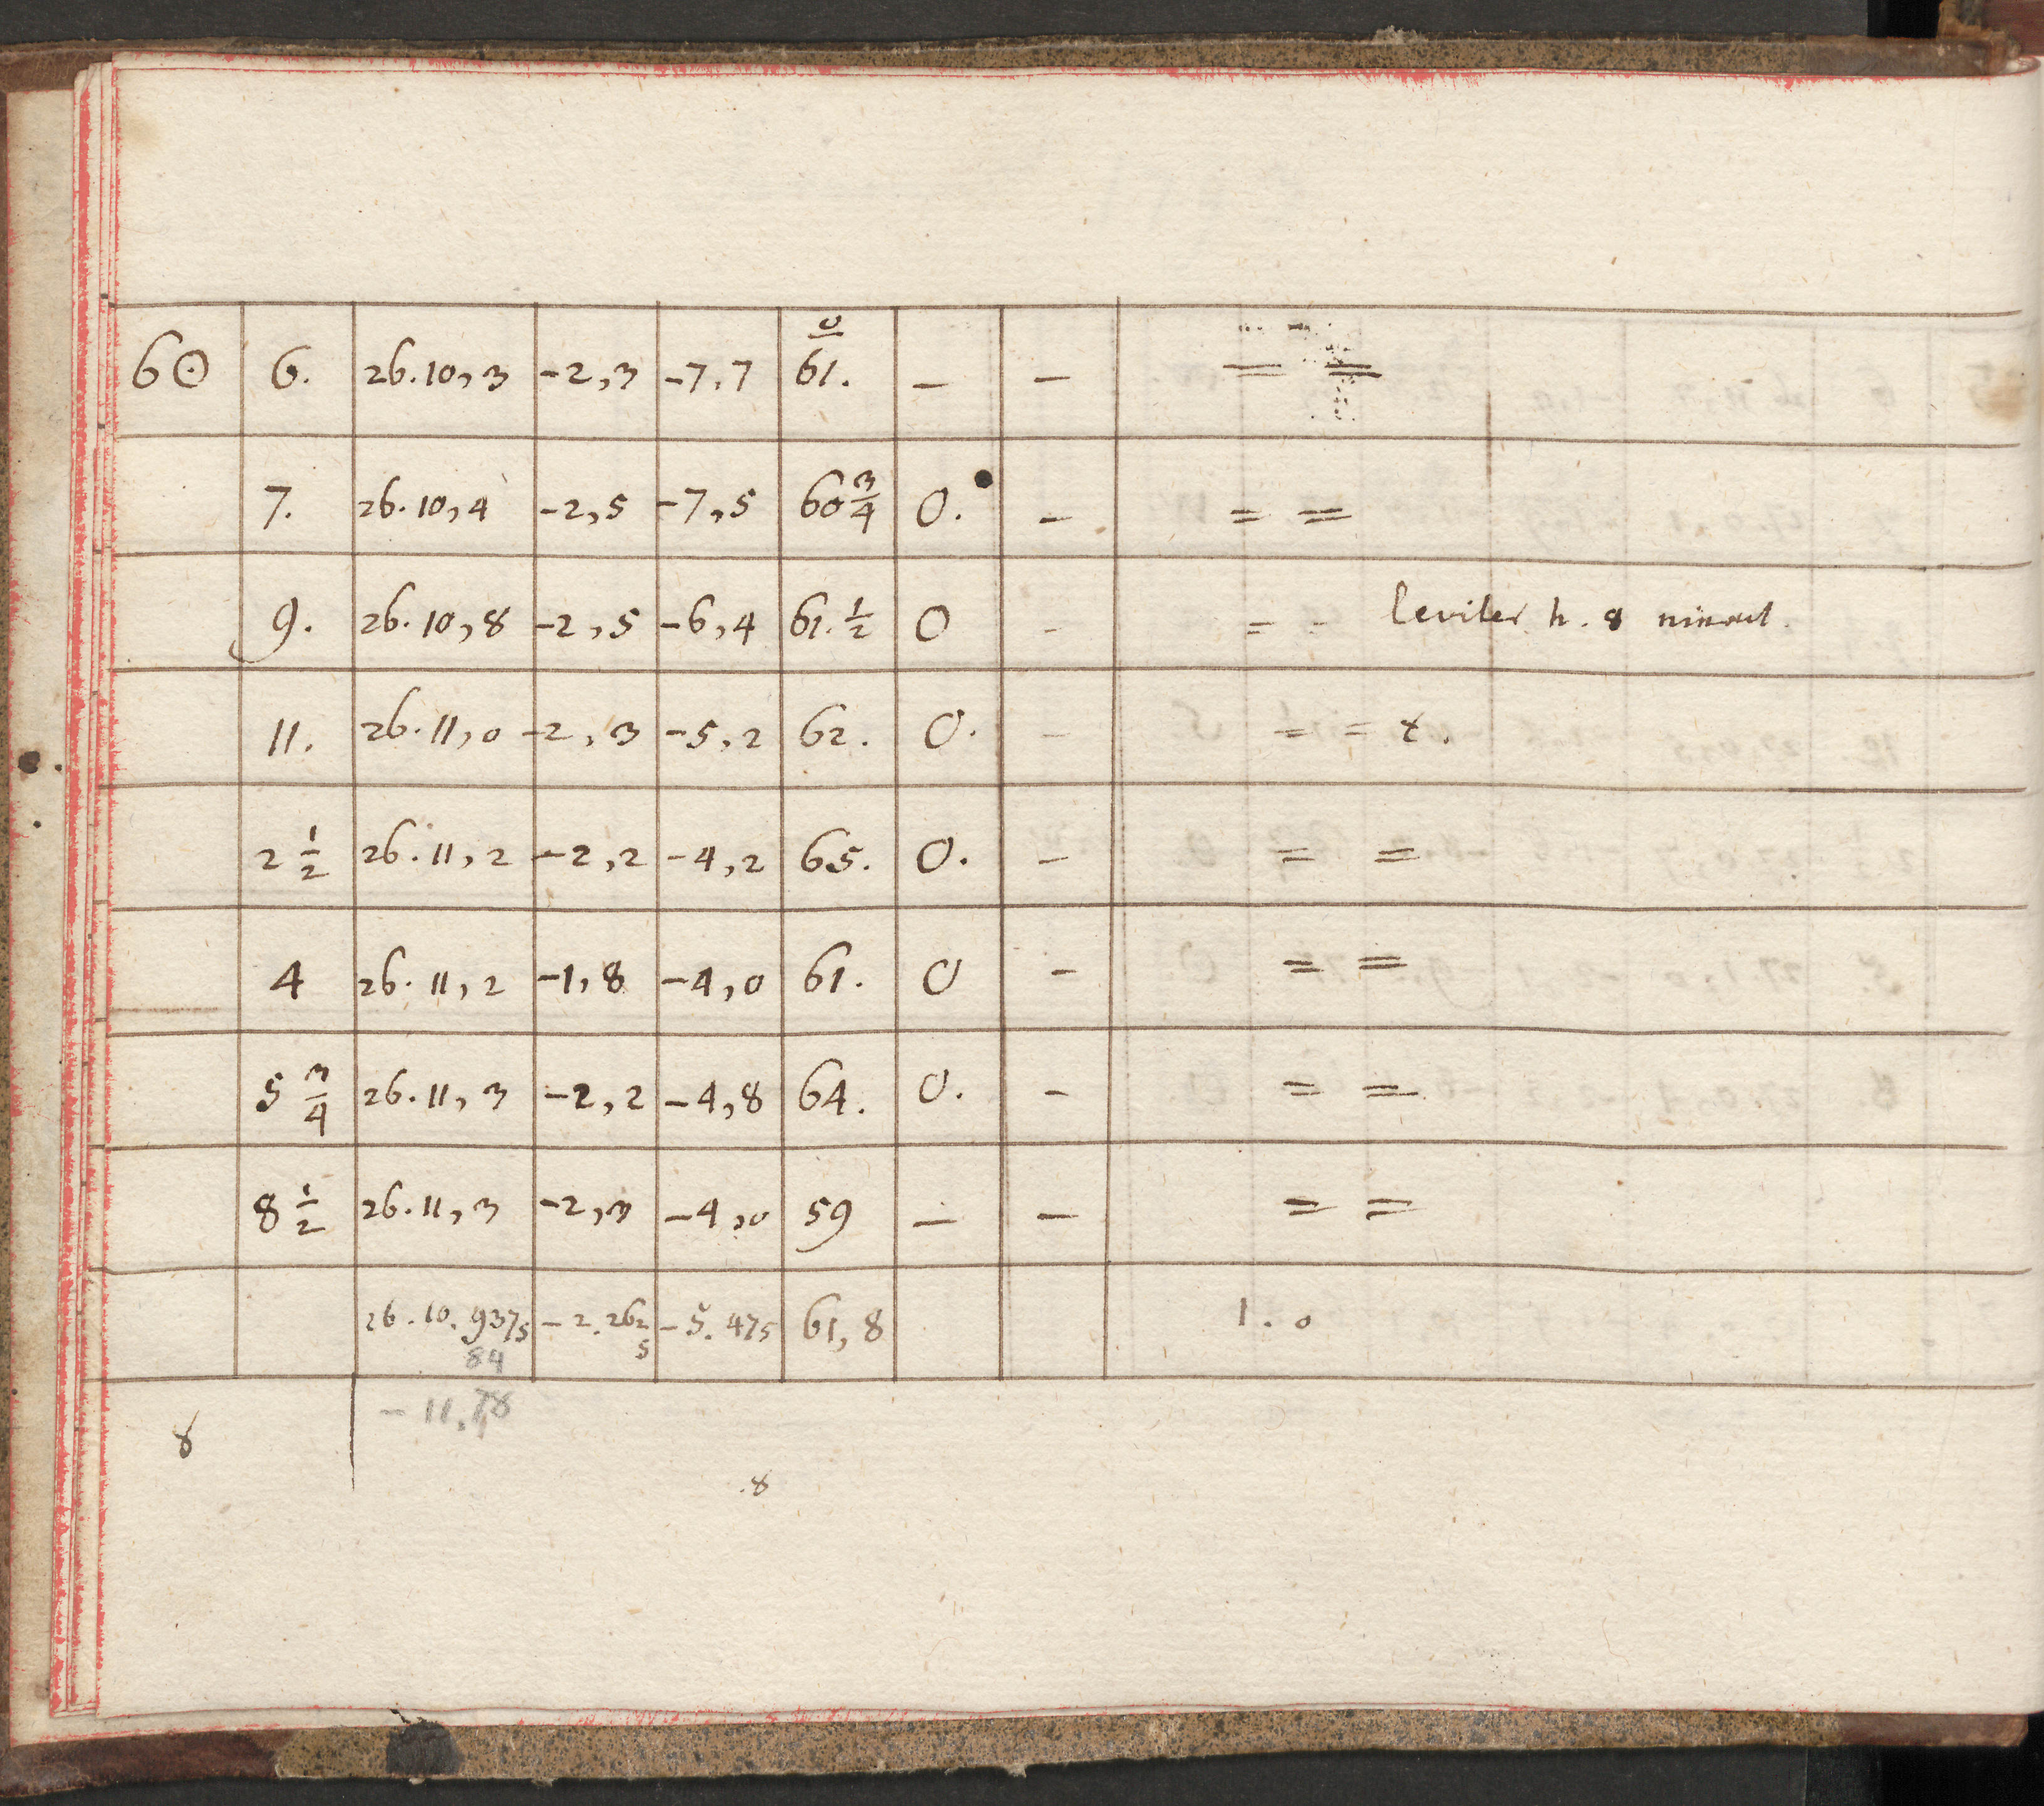 6☉ 6. 26.10,3 -2,3 -7,7 0 61. – – = =
7. 26.10,4 -2,5 -7,5 60 3/4 0. – = =
9. 26.10,8 -2,5 -6,4 61. 1/2 0 – = = leviter h. 8
11. 26.11,0 -2,3 -5,2 62. 0. – = =
2 1/2 26.11,2 -2,2 -4,2 65. 0. – = =
4 26.11,2 -1,8 -4,0 61. 0 – = =
5 3/4 26.11,3 -2,2 -4,8 64. 0. – = =
8 1/2 26.11,3 -2,3 -4,0 59 – – = =
26.10.9375 -2.2625 -5.475 61,8 1.0
84
- 11.
8
.8